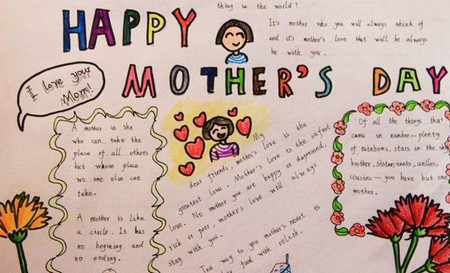 HAPPY
MOTHER'S DAY
thing in the world?
It's mother who you will always think of
and it's mother's love that will be always
be with you.
I love your
Mom!
A mother is she
who can take the
place of all others
but whose place
no one else can
take.
A mother is like
a circle. It has
no begining and
no ending.
My
dear friends, mother's love is the
greatest love. Mother's love is the safest
love. No matter you are happy or depressed,
rich or poor, mother's love will always
stay with you.
Tea way to you mother's heart is
fued with relish.
Of all the things that
came in number—plenty
of rainbows, stars in the sky
brother, sister, aunts, smiles,
cousins—you have but one
mother.